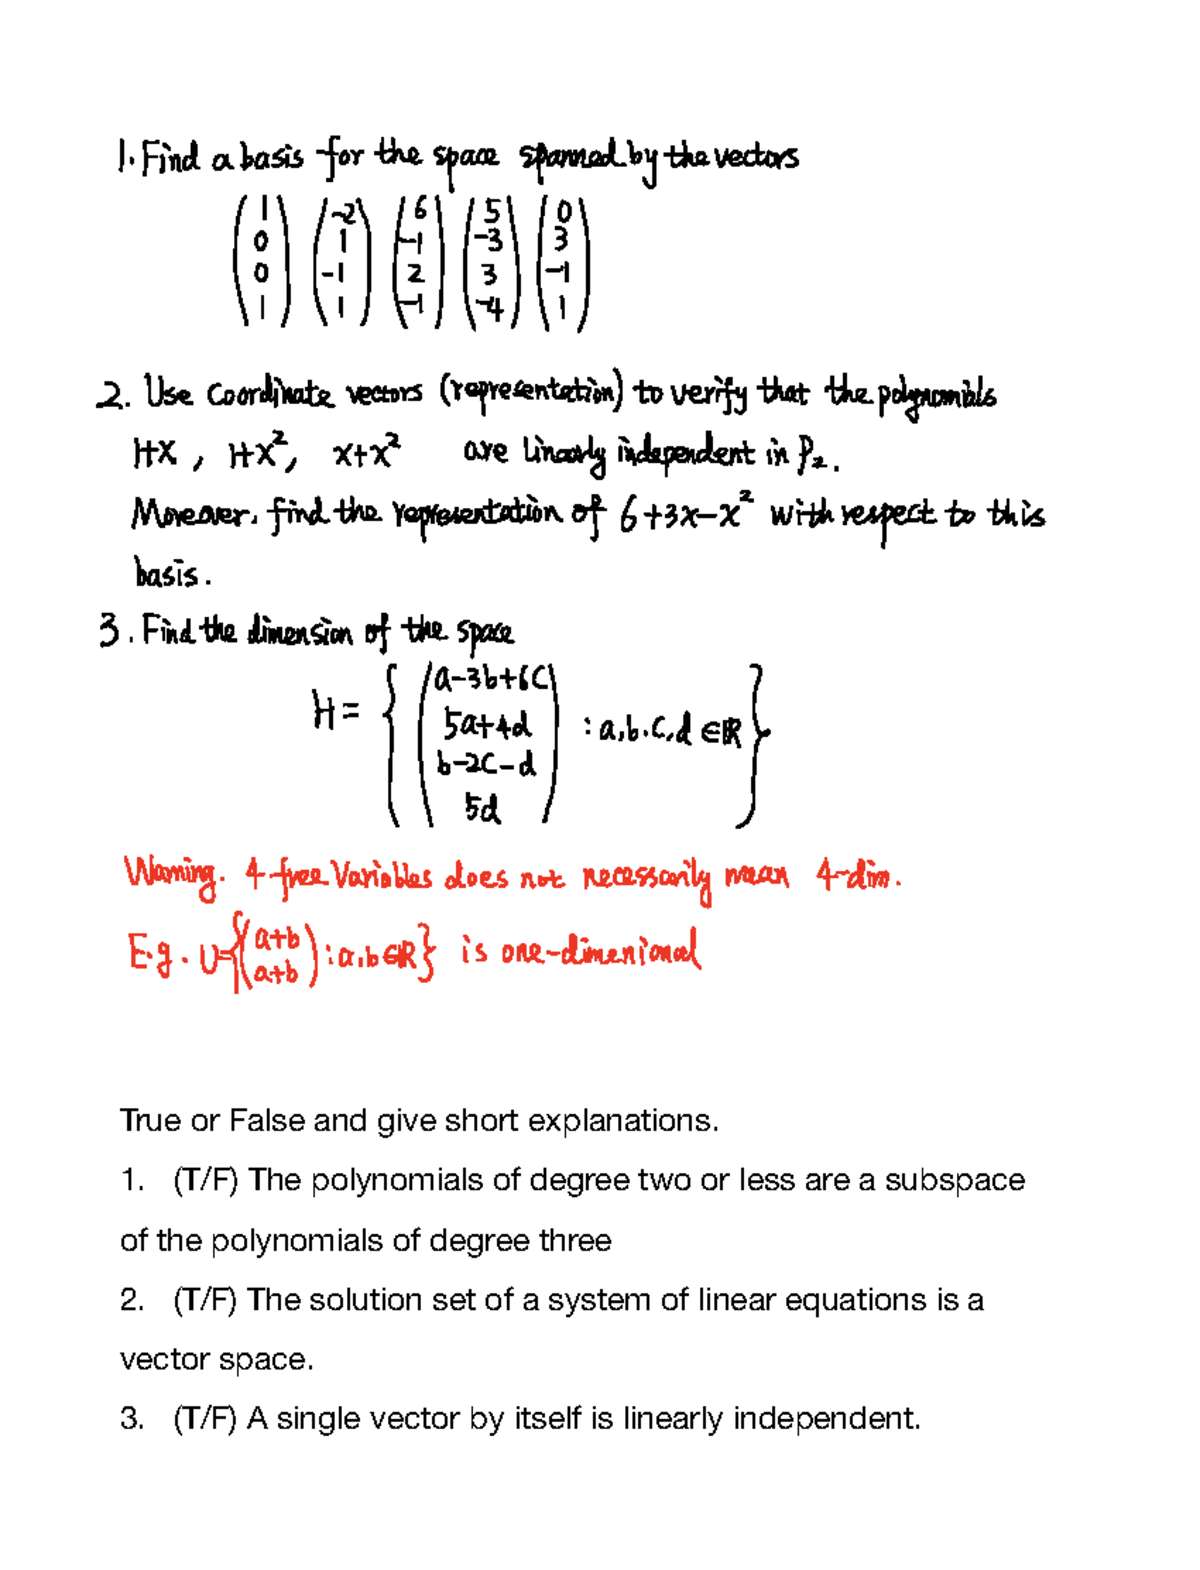 1. Find a basis for the space spanned by the vectors
(1 0 0 1) (-2 1 -1 1) (6 -1 2 -1) (5 -3 3 -4) (0 3 -1 1)
2. Use Coordinate vectors (representation) to verify that the polynomials
1+x, 1+x², x+x² are linearly independent in P₂.
Moreover, find the representation of 6+3x-x² with respect to this
basis.
3. Find the dimension of the space
H = { (a-3b+6c
5a+4d
b-2c-d
5d) : a,b,c,d ∈ℝ }
Warning. 4-free Variables does not necessarily mean 4-dim.
E.g. U={(a+b a+b) : a,b∈ℝ} is one-dimenional
True or False and give short explanations.
1. (T/F) The polynomials of degree two or less are a subspace
of the polynomials of degree three
2. (T/F) The solution set of a system of linear equations is a
vector space.
3. (T/F) A single vector by itself is linearly independent.